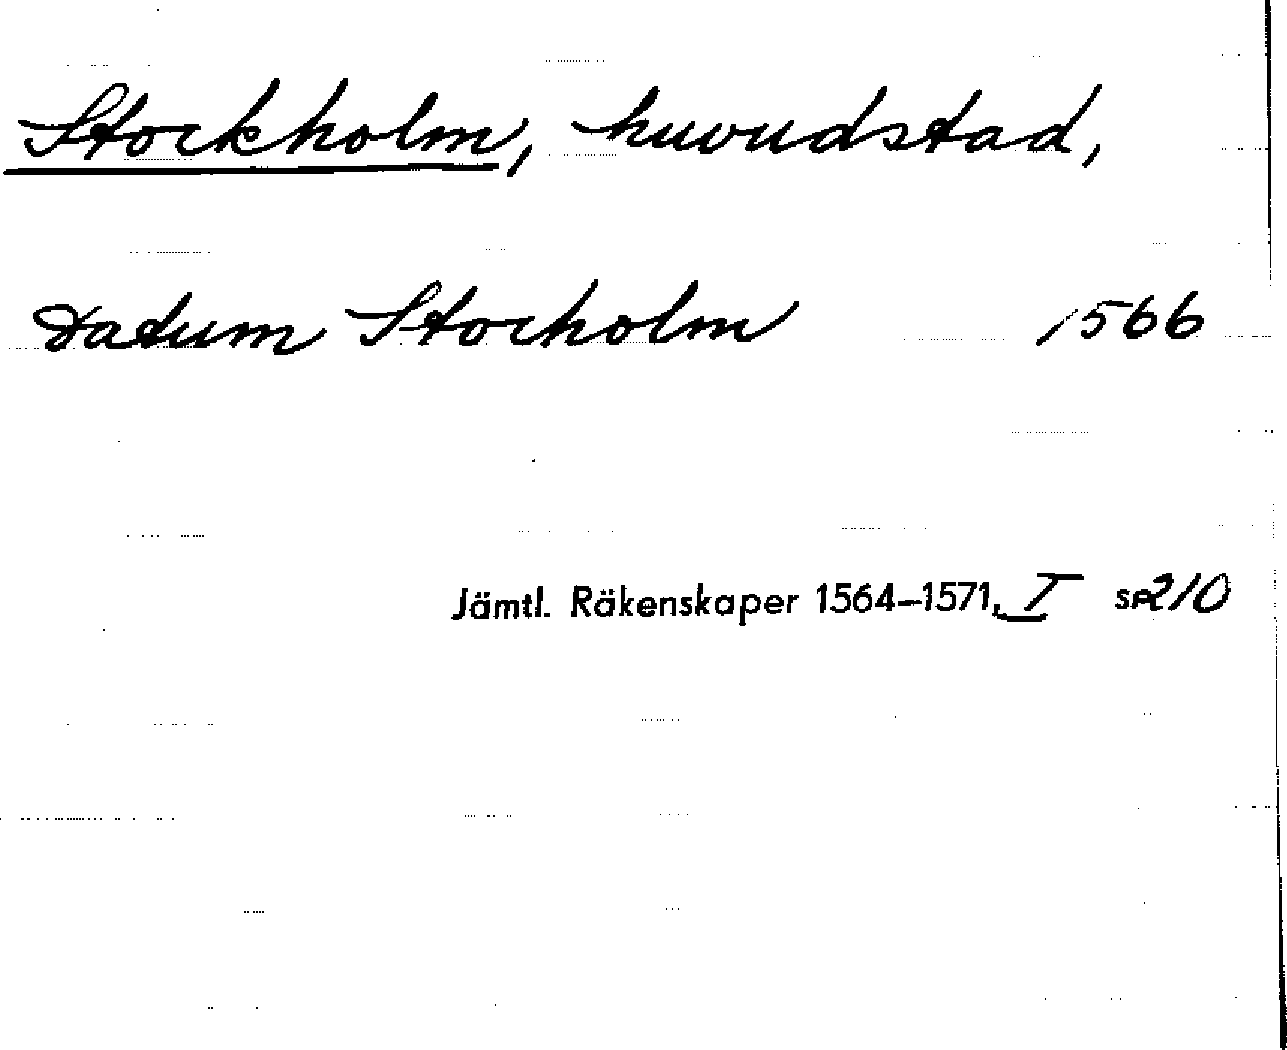 Stockholm, huvudstad,
Datum Stocholm 1566
Jämtl. Räkenskaper 1564–1571, I sp 210